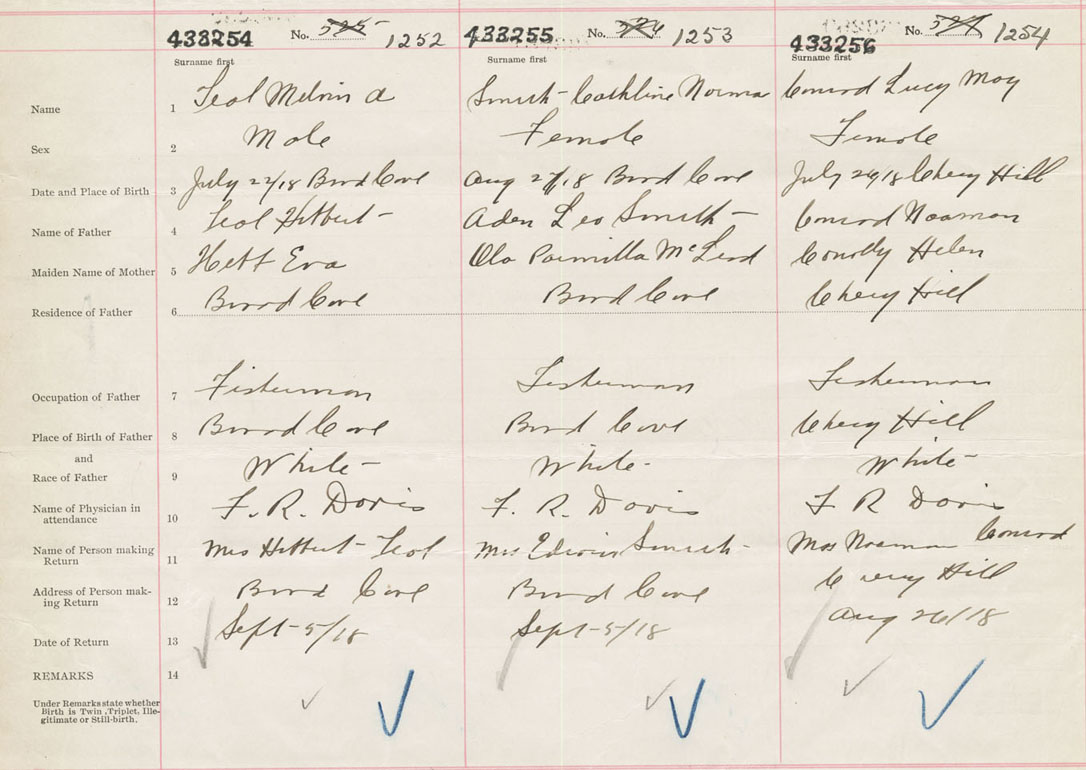 433254 No. 525 1252
433255 No. 524 1253
433256 No. 1254
Surname first Surname first Surname first
Name 1 Teal Melvin A Smith Cathline Norma Conrad Lucy May
Sex 2 Male Female Female
Date and Place of Birth 3 July 22/18 Bird Cove Aug 27/18 Bird Cove July 26/18 Chery Hill
Name of Father 4 Teal Hibbert Aden Leo Smith Conrad Naaman
Maiden Name of Mother 5 Hett Eva Ola McLeod Helen
Residence of Father 6 Bird Cove Bird Cove Chery Hill
Occupation of Father 7 Fisherman Fisherman Fisherman
Place of Birth of Father 8 Bird Cove Bird Cove Chery Hill
and
Race of Father 9 White White White
Name of Physician in
attendance 10 F. R. Davis F. R. Davis F R Davis
Name of Person making
Return 11 Mrs Hibbert Teal Mrs Smith Mrs Conrad
Address of Person mak-
ing Return 12 Bird Cove Bird Cove Hill
Date of Return 13 Sept 5/18 Sept 5/18 Aug 26/18
REMARKS 14
Under Remarks state whether
Birth is Twin, Triplet, Ille-
gitimate or Still-birth.